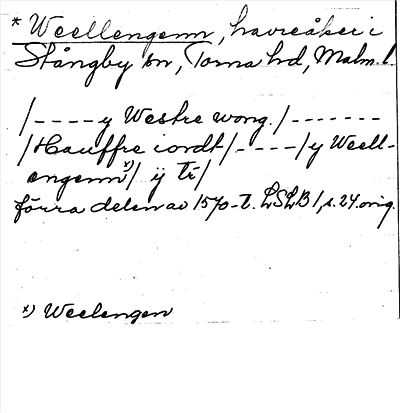 * Weellengenn, havreåker i
Stångby sn, Torna hd, Malm. l.
/----y Westre wong./-------
/Hauffre iordt/----/y Weell-
engenn x)/ ÿ tt/
förra delen av 1570-t. LSLB 1, s. 24 orig.
x) Weelengen